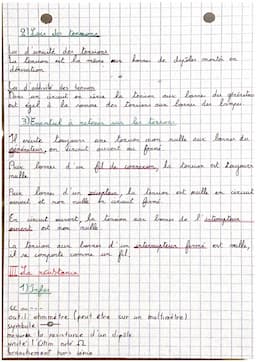 2) Lois des tensions
Loi d'unicité des tensions
La tension est la même aux bornes de dipôles montés en
dérivation.
Loi d'additivité des tensions
Dans un circuit en série la tension aux bornes du générateur
est égal à la somme des tensions aux bornes des lampes.
3) Essentiel à retenir sur les tensions
Il existe toujours une tension non nulle aux bornes du
générateur, en circuit ouvert ou fermé
Aux bornes d'un fil de connexion, la tension est toujours
nulle.
Aux bornes d'un récepteur, la tension est nulle en circuit
ouvert et non nulle en circuit fermé
En circuit ouvert, la tension aux bornes de l'interrupteur
ouvert est non nulle.
La tension aux bornes d'un interrupteur fermé est nulle,
il se comporte comme un fil.
III La résistance
1) Infos
outil: ohmmètre (peut être sur un multimètre)
symbole
mesure: la résistance d'un dipôle
unité: l'Ohm noté Ω
branchement: hors série